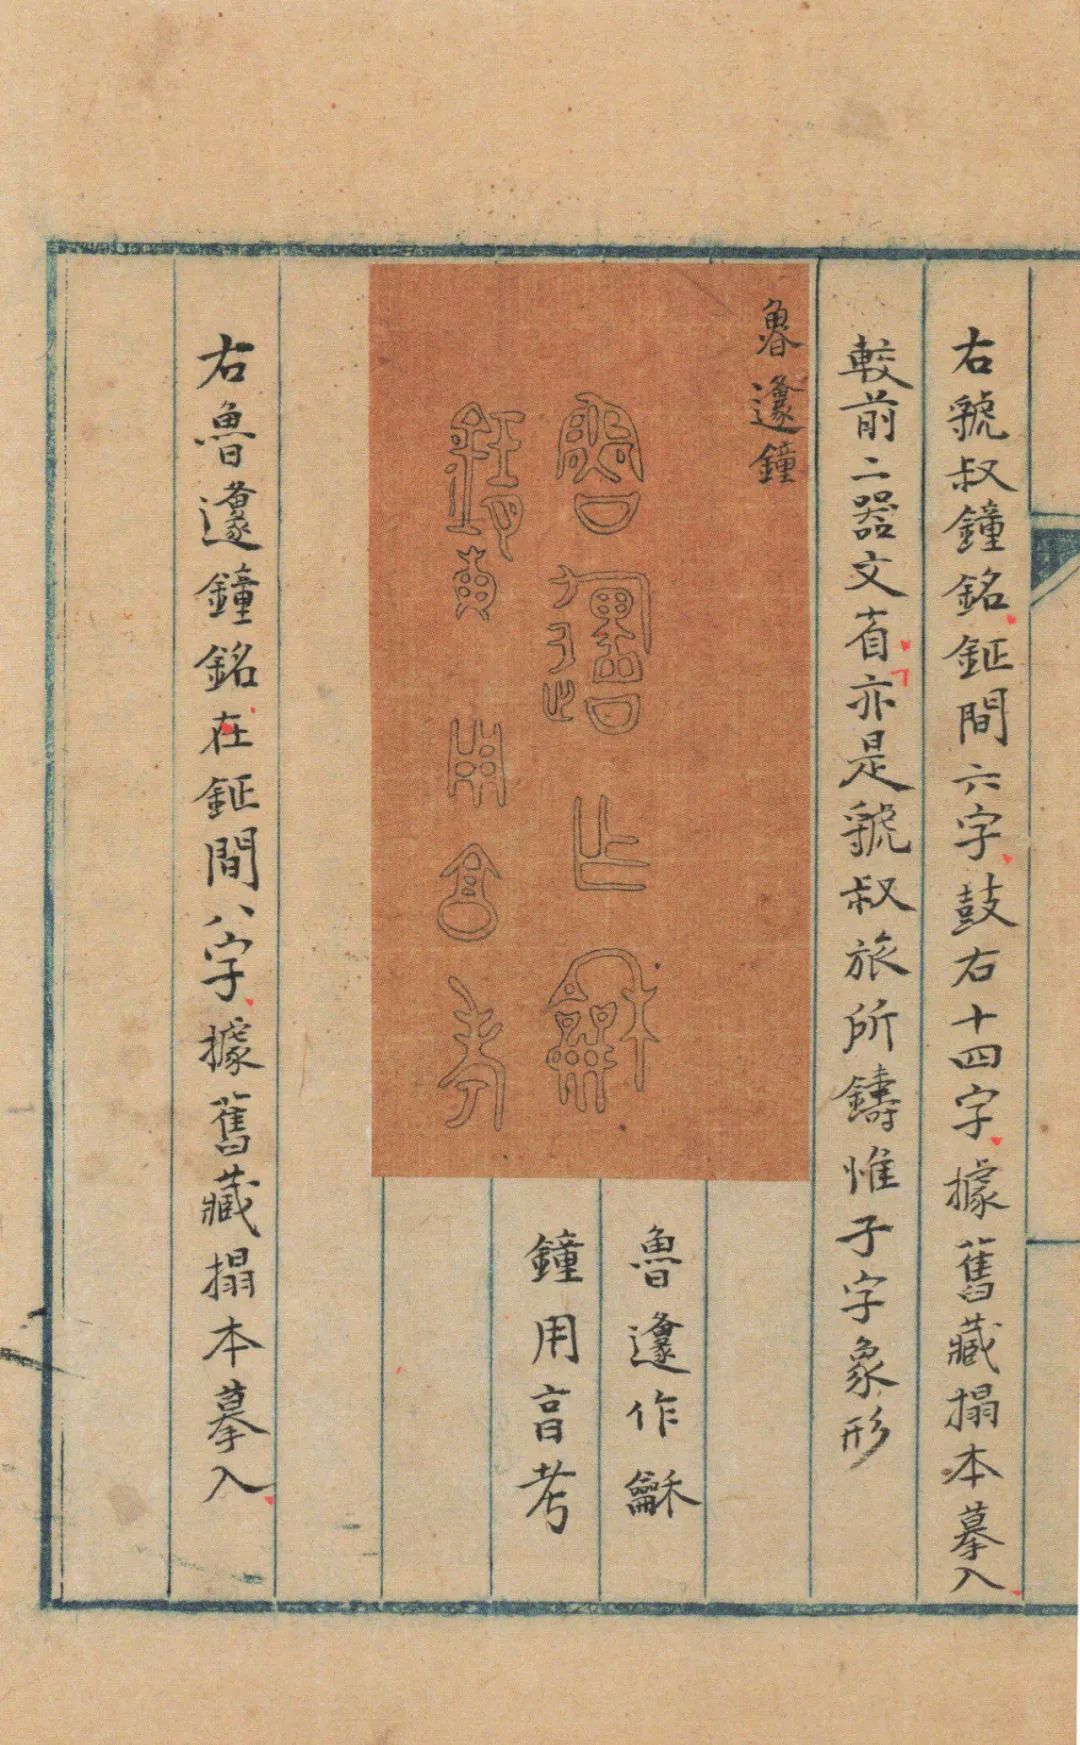 右虢叔鐘銘鉦間六字鼓右十四字據舊藏搨本摹入
較前二器文省亦是虢叔旅所鑄惟子字象形
魯邍鐘
魯邍作龢
鐘用亯考
右魯邍鐘銘在鉦間八字據舊藏搨本摹入